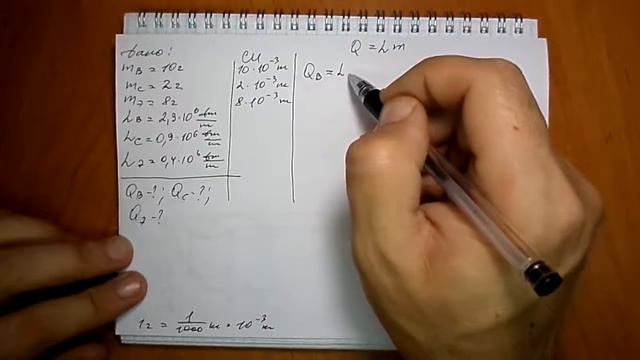 Дано:
m_B = 10г
m_C = 2г
m_Э = 8г
L_B = 2,3·10⁶ Дж/кг
L_C = 0,9·10⁶ Дж/кг
L_Э = 0,4·10⁶ Дж/кг
Q_B-?; Q_C-?;
Q_Э-?
СИ
10·10⁻³кг
2·10⁻³кг
8·10⁻³кг
Q = Lm
Q_B = L
1г = 1/1000 кг = 10⁻³кг